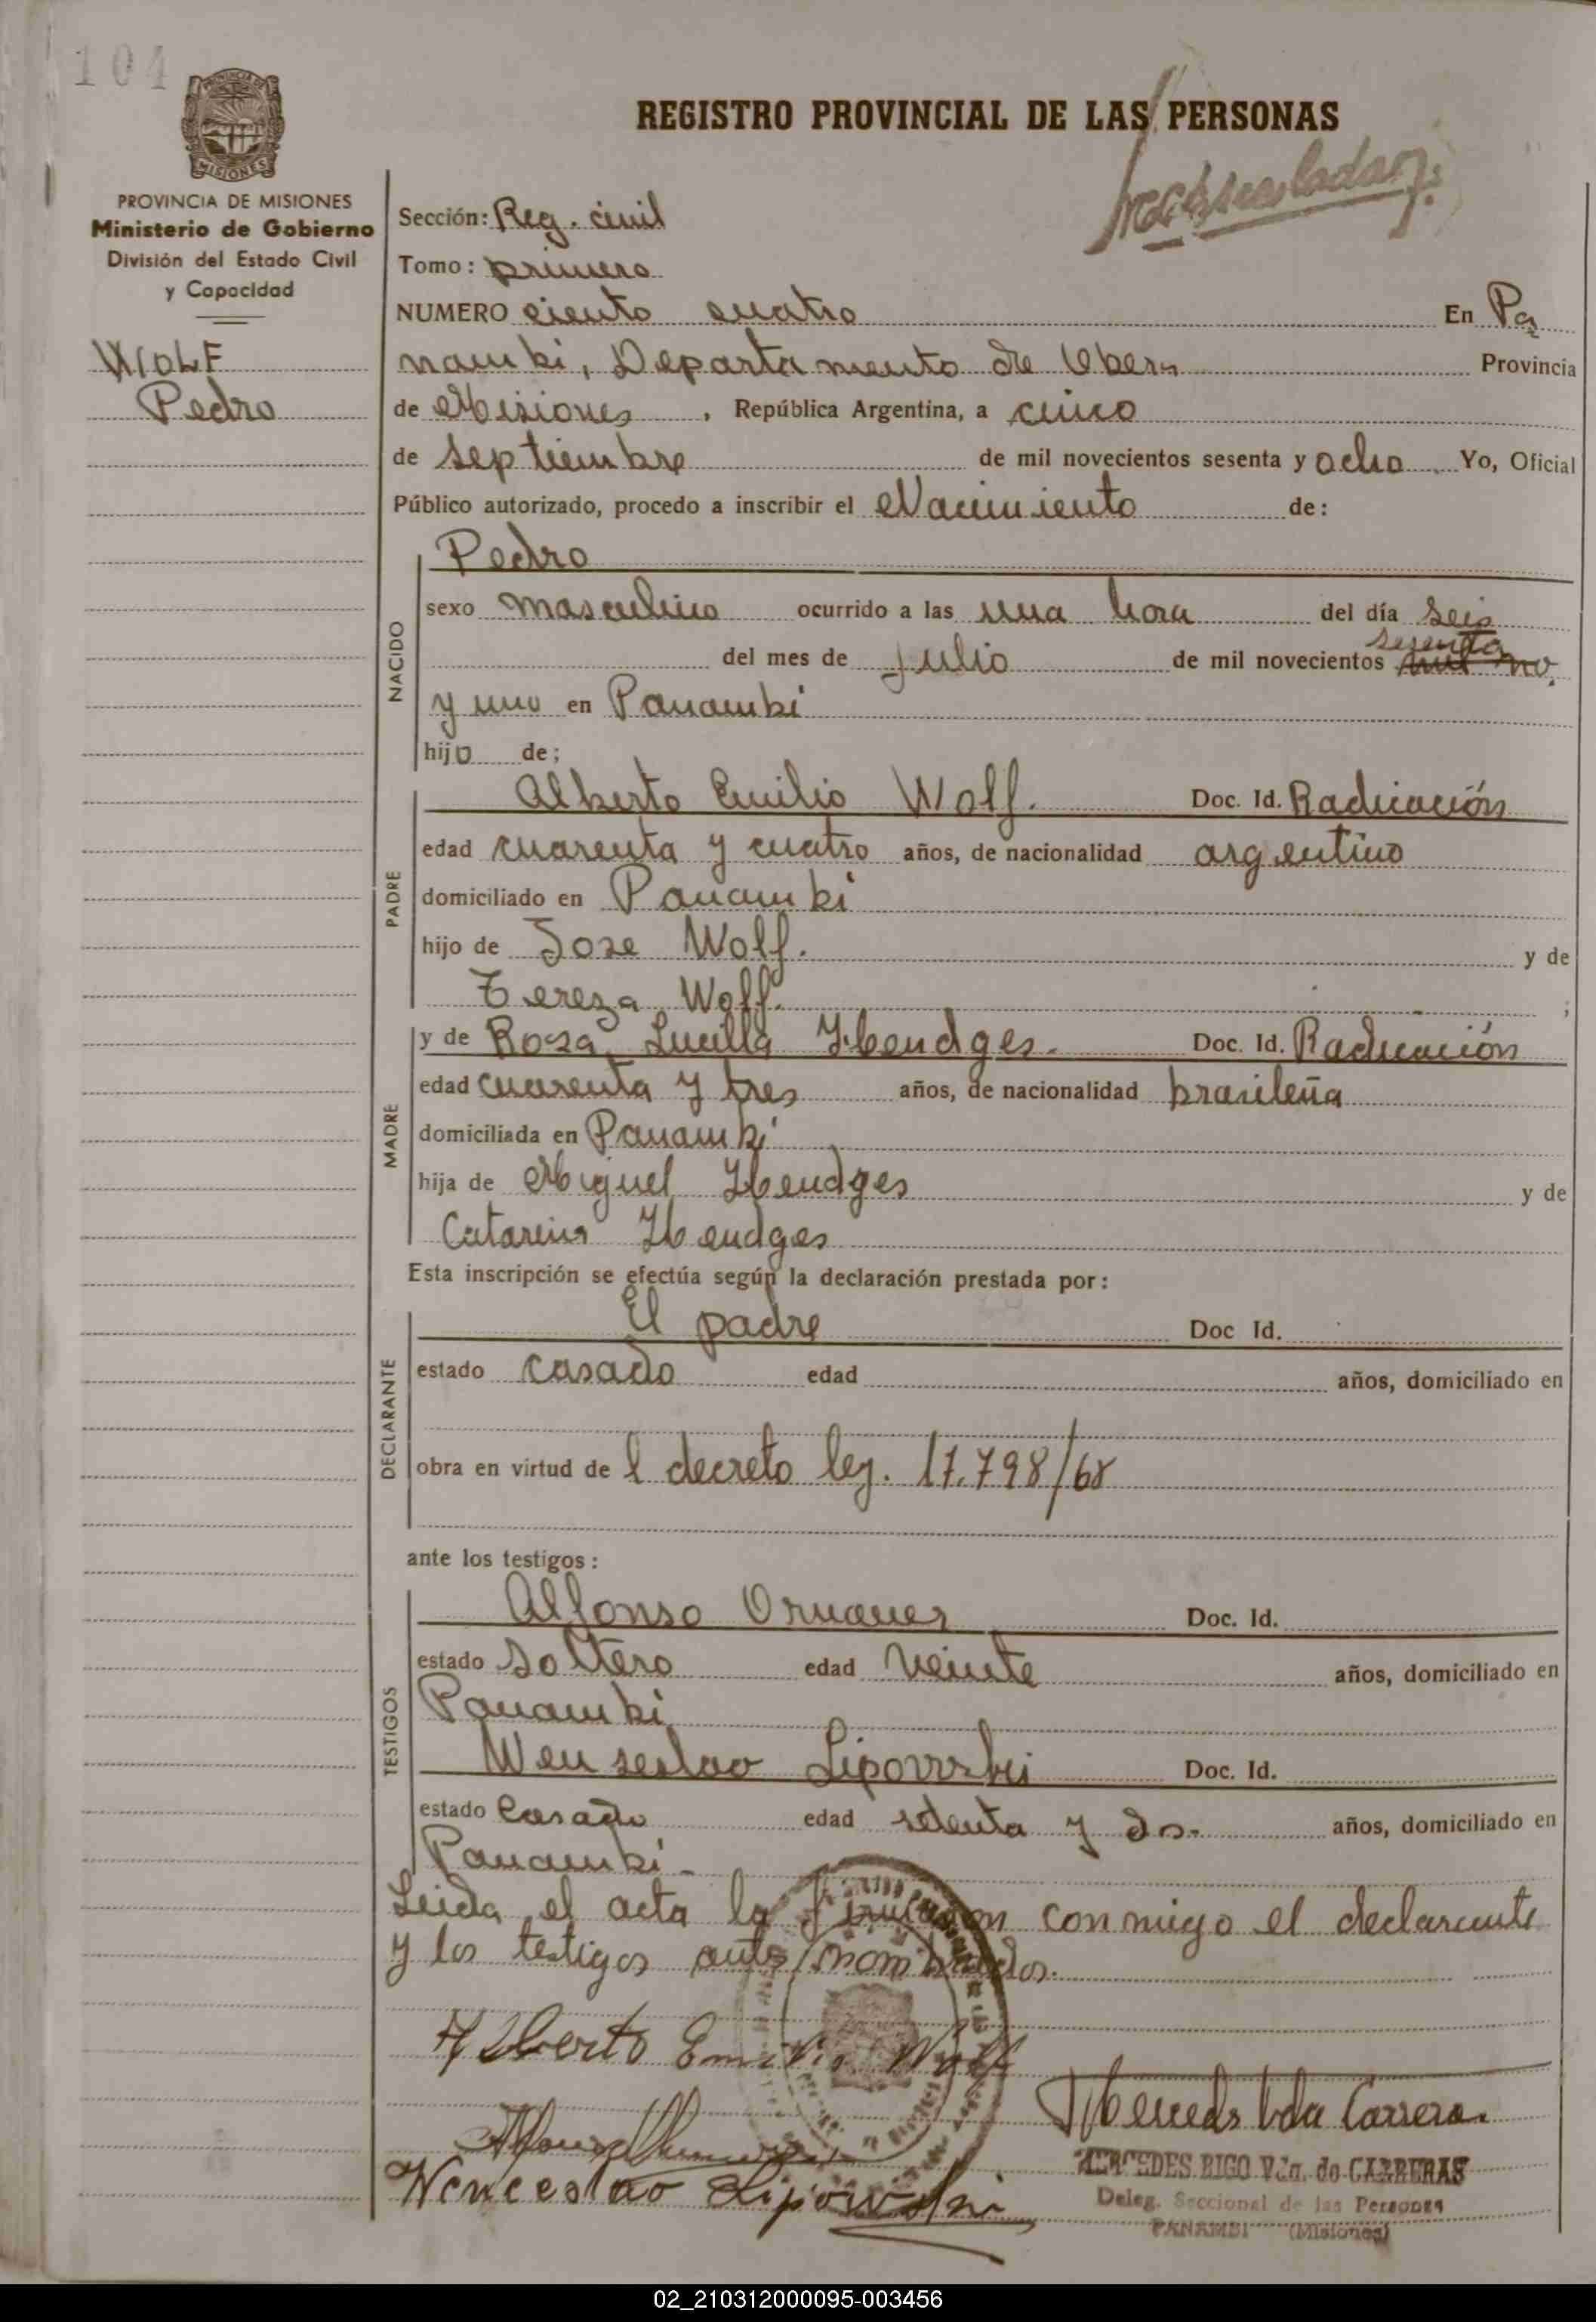 104
MISIONES
PROVINCIA DE MISIONES
Ministerio de Gobierno
División del Estado Civil
y Capacidad
WOLF
Pedro
REGISTRO PROVINCIAL DE LAS PERSONAS
Sección: Reg. civil
Tomo: primero
NUMERO ciento cuatro En Pa
nambi, Departamento de Obera Provincia
de Misiones, República Argentina, a cinco
de septiembre de mil novecientos sesenta y ocho Yo, Oficial
Público autorizado, procedo a inscribir el Nacimiento de:
NACIDO
Pedro
sexo masculino ocurrido a las una hora del día seis
del mes de Julio de mil novecientos sesenta
y uno en Panambi
hijo de;
PADRE
Alberto Emilio Wolf. Doc. Id. Radicación
edad cuarenta y cuatro años, de nacionalidad argentino
domiciliado en Panambi
hijo de Jose Wolf. y de
Tereza Wolf. ;
MADRE
y de Rosa Lucilla Hendges. Doc. Id. Radicación
edad cuarenta y tres años, de nacionalidad brasileña
domiciliada en Panambi
hija de Miguel Hendges y de
Catarina Hendges
Esta inscripción se efectúa según la declaración prestada por:
DECLARANTE
El padre Doc Id.
estado casado edad años, domiciliado en
obra en virtud de l decreto ley. 17.798/68
ante los testigos:
TESTIGOS
Alfonso Doc. Id.
estado Soltero edad veinte años, domiciliado en
Panambi
Wenseslao Lipowski Doc. Id.
estado Casado edad setenta y dos. años, domiciliado en
Panambi.
Leida el acta la firmaron conmigo el declarante
y los testigos ante nombrados.
Alberto Emilio Wolf
Wenceslao Lipowski
Mercedes Vda Carrera.
MERCEDES RIGO Vda. de CARRERAS
Deleg. Seccional de las Personas
PANAMBI (Misiones)
02_210312000095-003456